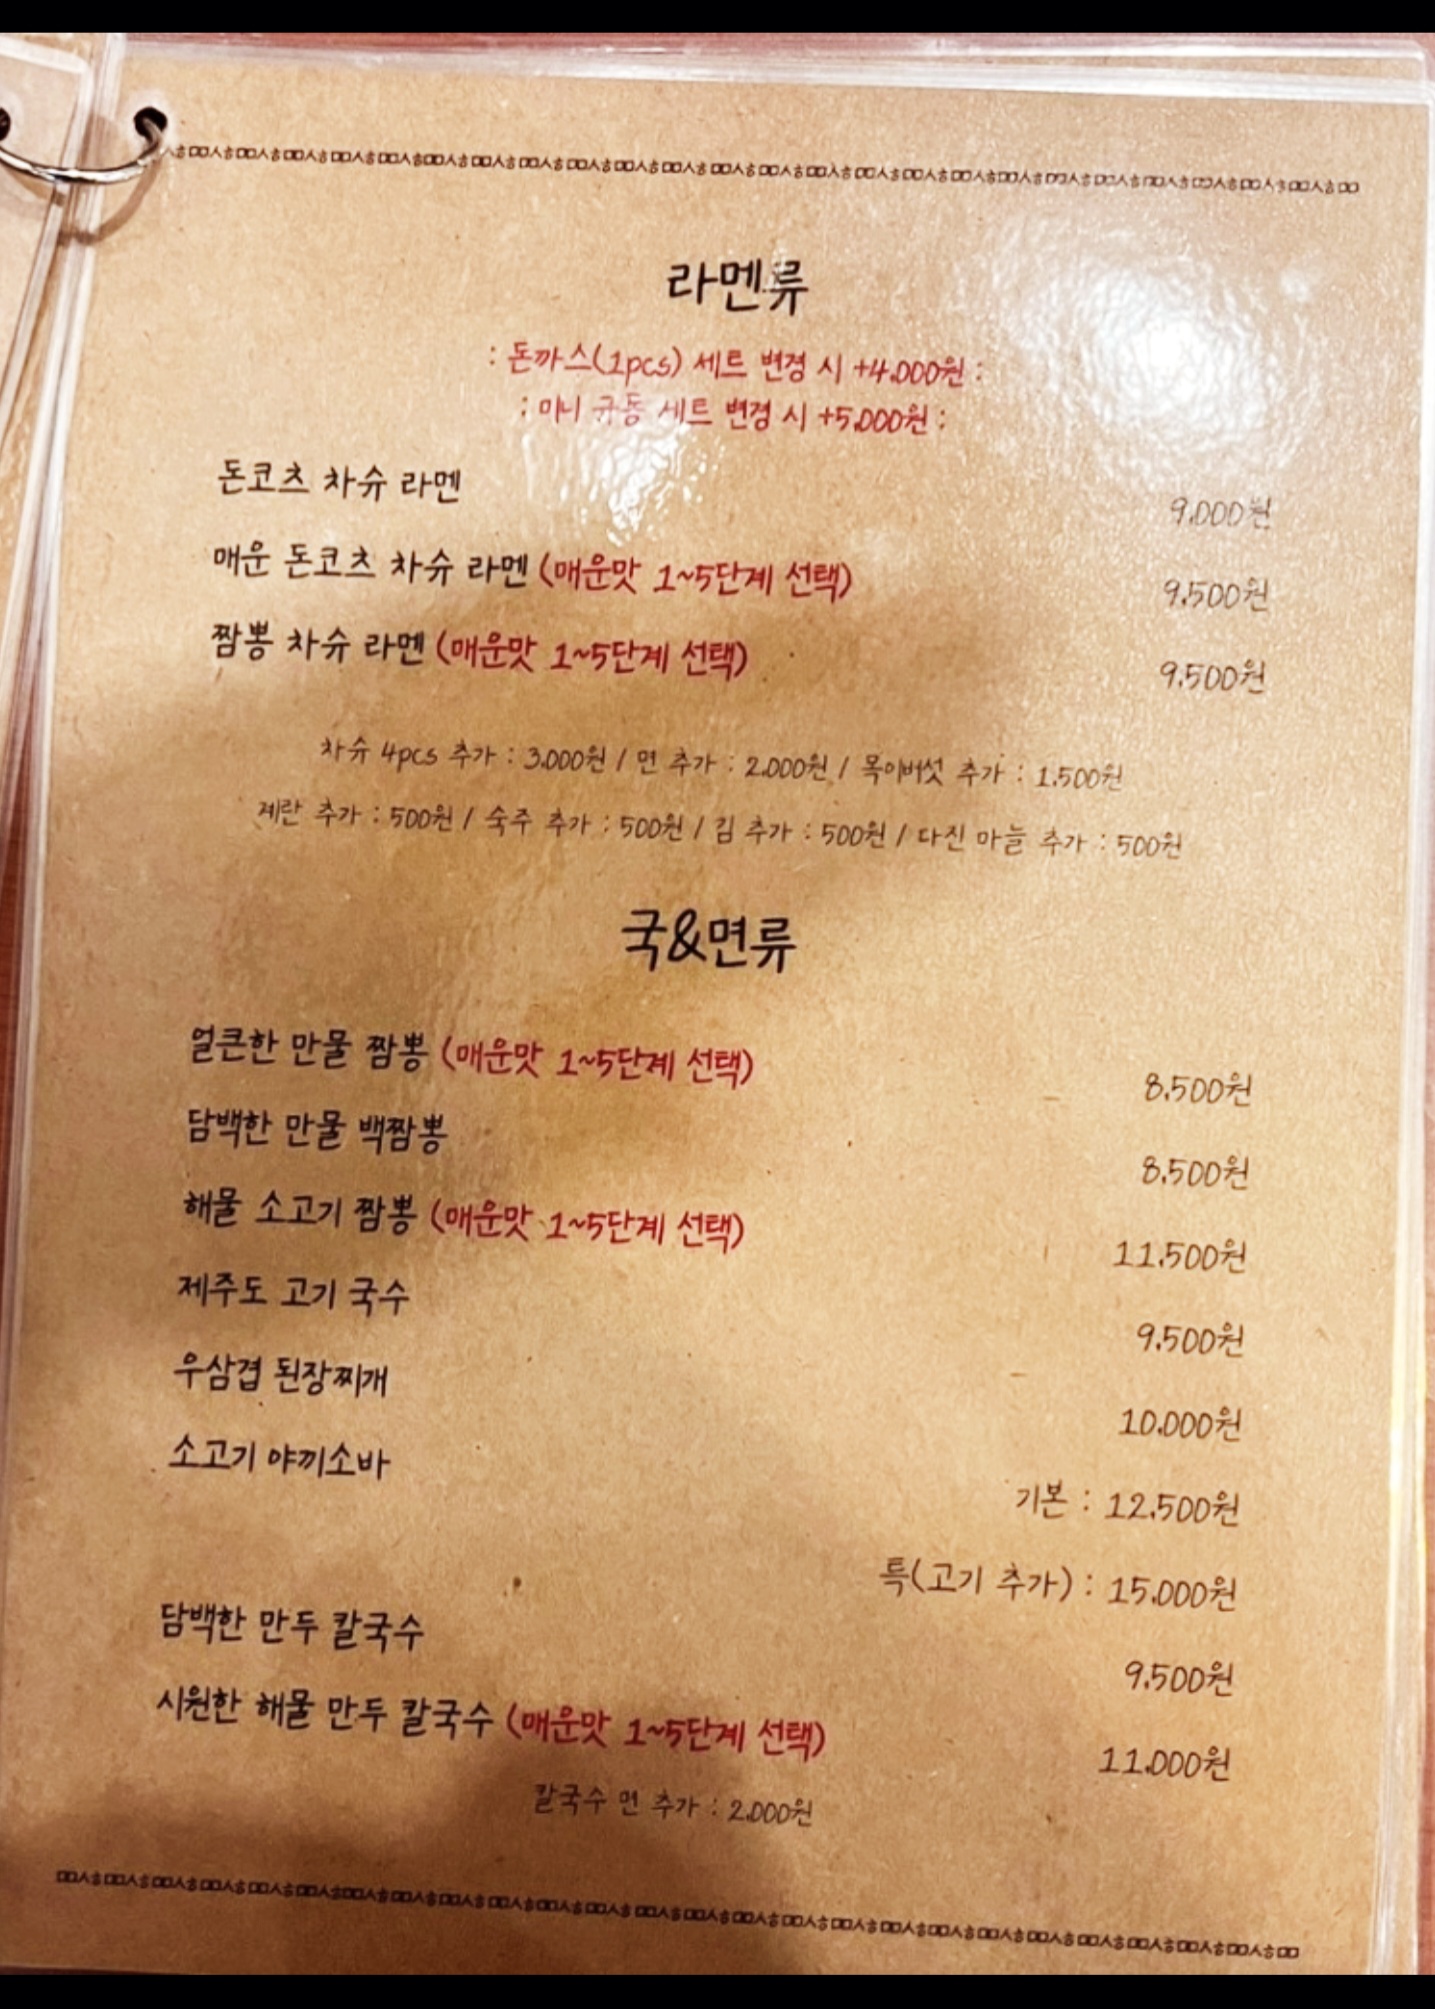 ㅅㅎㅁㅁㅅㅎㅁㅁㅅㅎㅁㅁㅅㅎㅁㅁㅅㅎㅁㅁㅅㅎㅁㅁㅅㅎㅁㅁㅅㅎㅁㅁㅅㅎㅁㅁㅅㅎㅁㅁㅅㅎㅁㅁㅅㅎㅁㅁㅅㅎㅁㅁㅅㅎㅁㅁㅅㅎㅁㅁㅅㅎㅁㅁㅅㅎㅁㅁㅅㅎㅁㅁㅅㅎㅁㅁㅅㅎㅁㅁㅅㅎㅁㅁㅅㅎㅁㅁㅅㅎㅁㅁㅅㅎㅁㅁㅅㅎㅁㅁ
라멘류
: 돈까스(1pcs) 세트 변경 시 +4,000원 :
: 미니 규동 세트 변경 시 +5,000원 :
돈코츠 차슈 라멘 9,000원
매운 돈코츠 차슈 라멘 (매운맛 1~5단계 선택) 9,500원
짬뽕 차슈 라멘 (매운맛 1~5단계 선택) 9,500원
차슈 4pcs 추가 : 3,000원 / 면 추가 : 2,000원 / 목이버섯 추가 : 1,500원
계란 추가 : 500원 / 숙주 추가 : 500원 / 김 추가 : 500원 / 다진 마늘 추가 : 500원
국&면류
얼큰한 만물 짬뽕 (매운맛 1~5단계 선택) 8,500원
담백한 만물 백짬뽕 8,500원
해물 소고기 짬뽕 (매운맛 1~5단계 선택) 11,500원
제주도 고기 국수 9,500원
우삼겹 된장찌개 10,000원
소고기 야끼소바 기본 : 12,500원
특(고기 추가) : 15,000원
담백한 만두 칼국수 9,500원
시원한 해물 만두 칼국수 (매운맛 1~5단계 선택) 11,000원
칼국수 면 추가 : 2,000원
ㅁㅁㅅㅎㅁㅁㅅㅎㅁㅁㅅㅎㅁㅁㅅㅎㅁㅁㅅㅎㅁㅁㅅㅎㅁㅁㅅㅎㅁㅁㅅㅎㅁㅁㅅㅎㅁㅁㅅㅎㅁㅁㅅㅎㅁㅁㅅㅎㅁㅁㅅㅎㅁㅁㅅㅎㅁㅁㅅㅎㅁㅁㅅㅎㅁㅁㅅㅎㅁㅁㅅㅎㅁㅁㅅㅎㅁㅁㅅㅎㅁㅁㅅㅎㅁㅁㅅㅎㅁㅁㅅㅎㅁㅁㅅㅎㅁㅁㅅㅎㅁㅁ